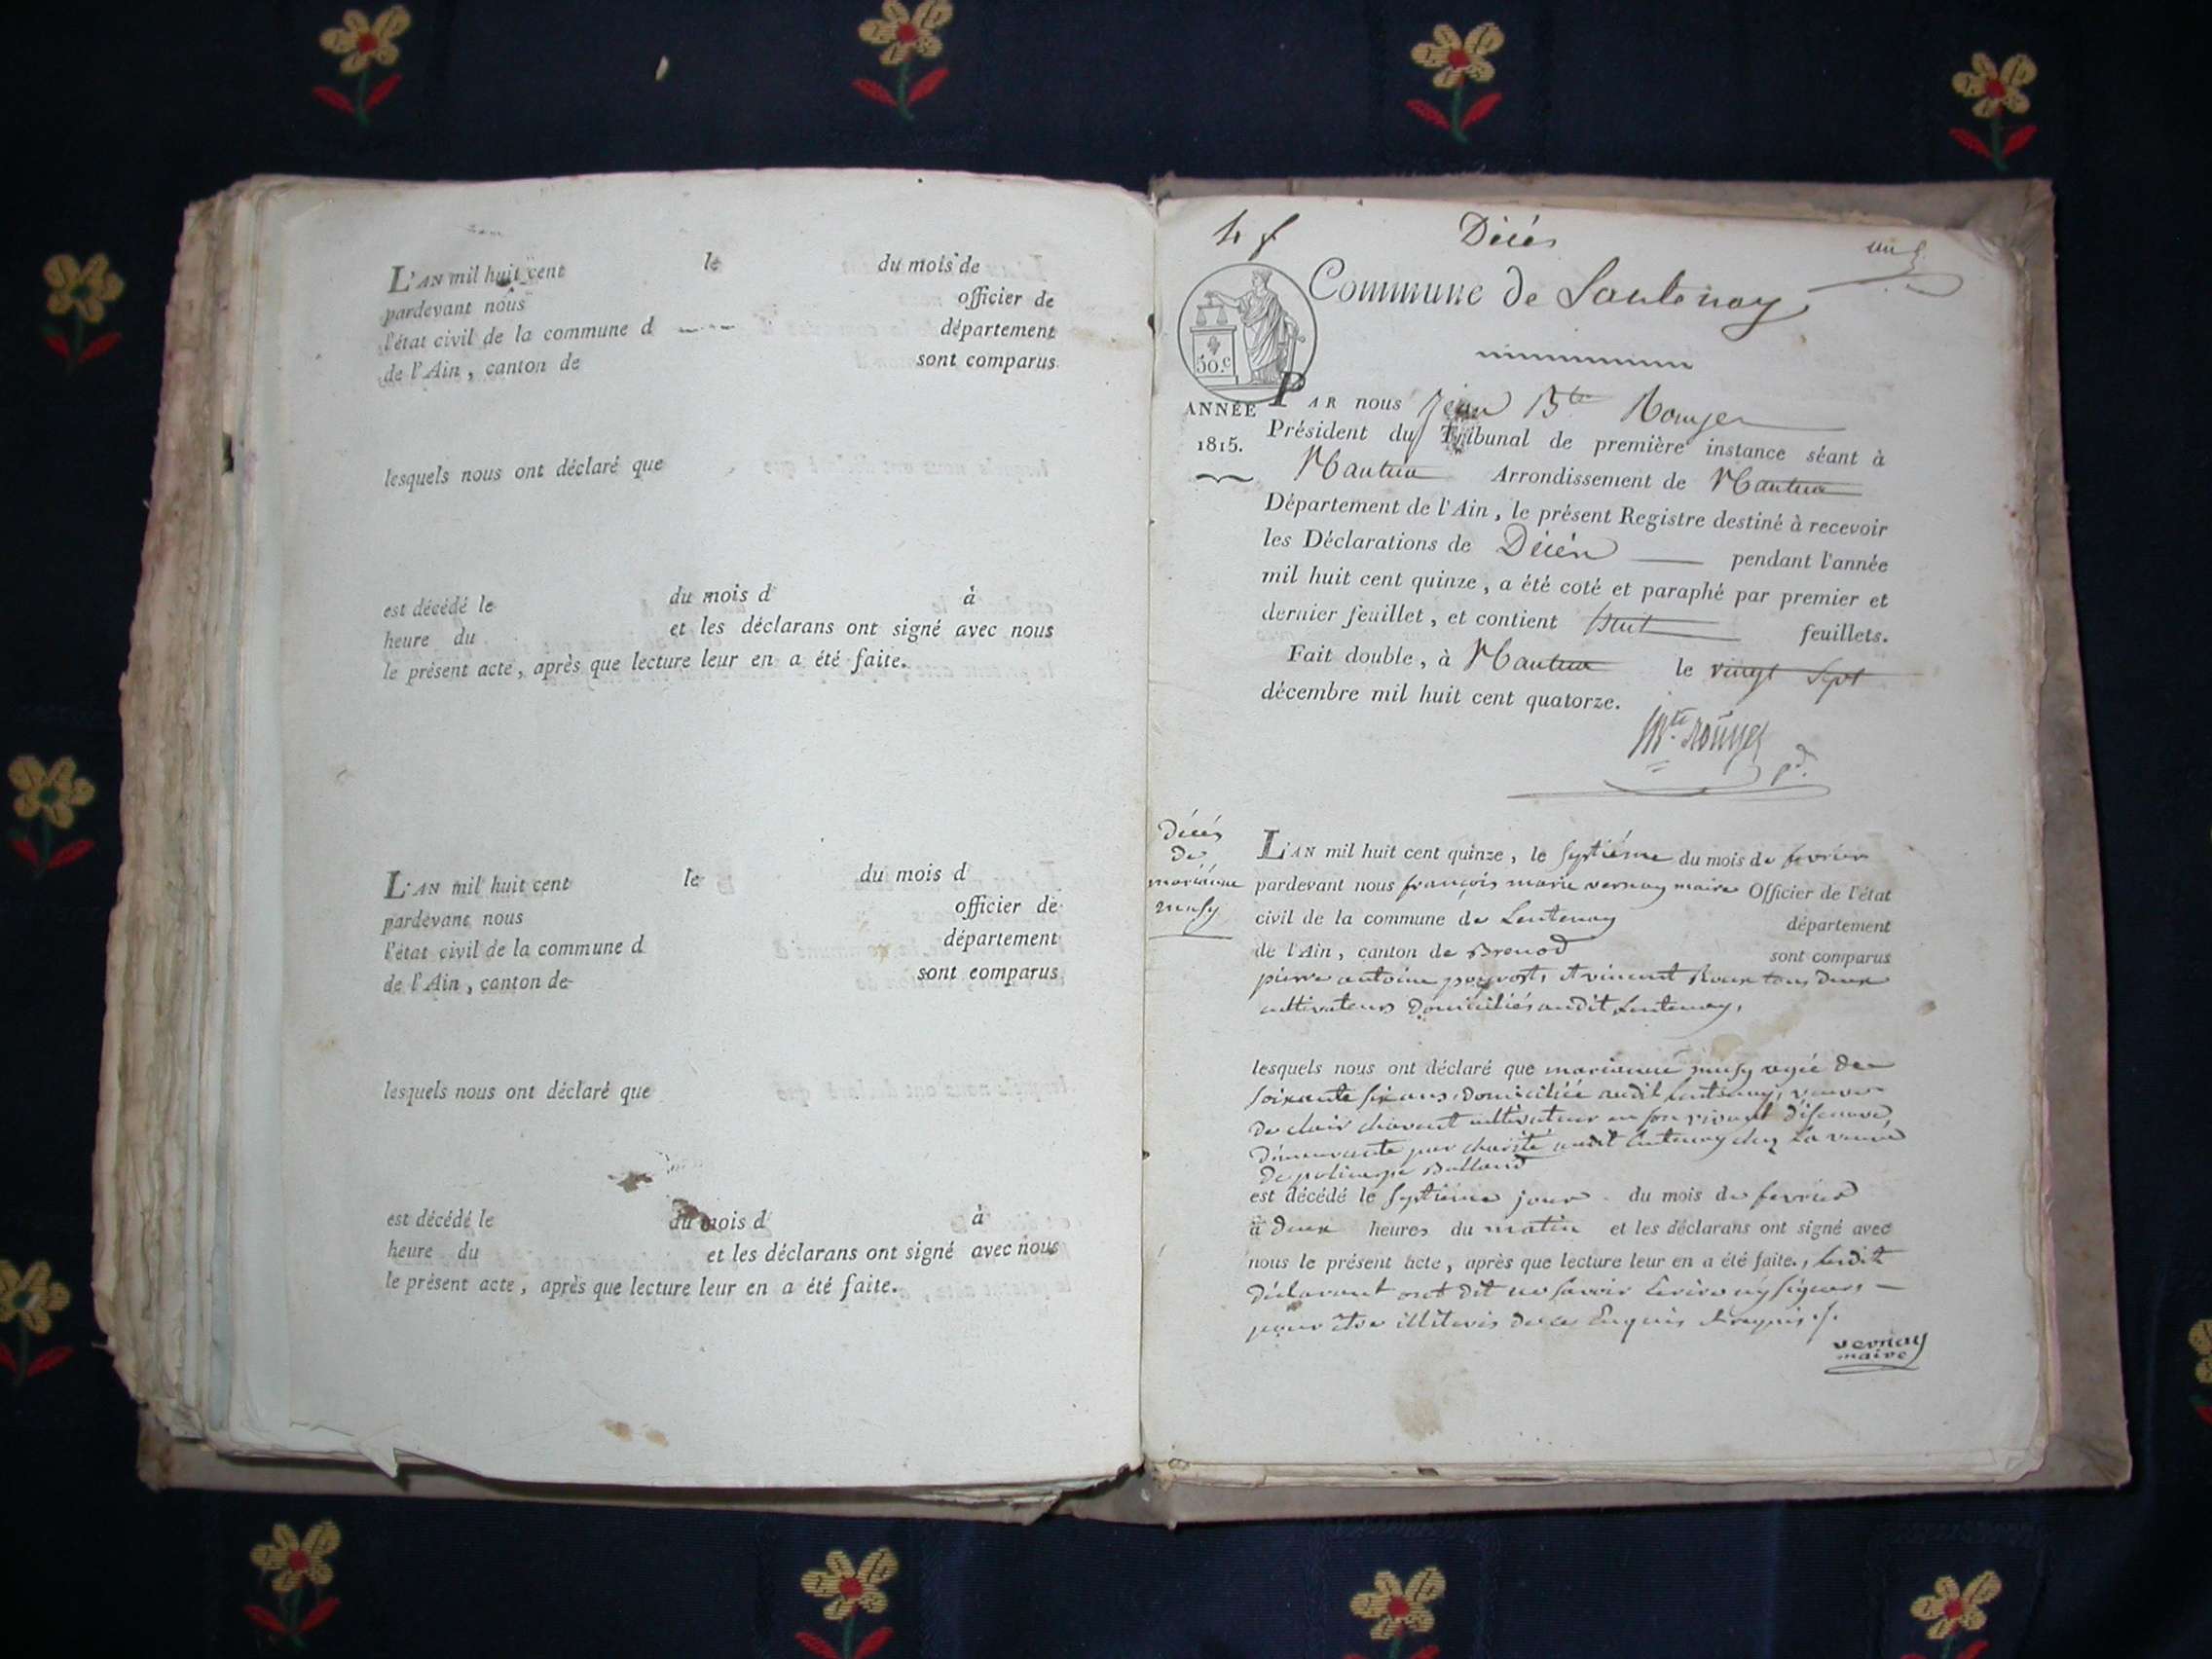 L'AN mil huit cent le du mois de
pardevant nous officier de
l'état civil de la commune d département
de l'Ain, canton de sont comparus
lesquels nous ont déclaré que
est décédé le du mois d à
heure du et les déclarans ont signé avec nous
le présent acte, après que lecture leur en a été faite.
L'AN mil huit cent le du mois d
pardevant nous officier de
l'état civil de la commune d département
de l'Ain, canton de sont comparus
lesquels nous ont déclaré que
est décédé le du mois d à
heure du et les déclarans ont signé avec nous
le présent acte, après que lecture leur en a été faite.
4 f Décés un
Commune de Lantenay
50.c
ANNÉE
1815.
PAR nous Jean Bte Rouyer
Président du Tribunal de première instance séant à
Nantua Arrondissement de Nantua
Département de l'Ain, le présent Registre destiné à recevoir
les Déclarations de Décès pendant l'année
mil huit cent quinze, a été coté et paraphé par premier et
dernier feuillet, et contient huit feuillets.
Fait double, à Nantua le vingt sept
décembre mil huit cent quatorze.
Bte Rouyer
pd.
Décés
de
marianne
musy
L'AN mil huit cent quinze, le septiéme du mois de fevrier
pardevant nous françois marie vernay maire Officier de l'état
civil de la commune de Lentenay département
de l'Ain, canton de Brenod sont comparus
pierre antoine et vincent Roux tous deux
cultivateurs domiciliés audit Lentenay,
lesquels nous ont déclaré que marianne musy agée de
soixante six ans, domiciliée audit Lentenay, veuve
de clair chavent cultivateur en son vivant
demeurante par charité audit Lentenay chez La veuve
de Balland
est décédé le septiéme jour du mois de fevrier
à deux heures du matin et les déclarans ont signé avec
nous le présent acte, après que lecture leur en a été faite., lesdits
déclarant ont dit ne savoir Ecrire ny signer,
pour être illiterés de ce Enquis et requis ./.
vernay
maire